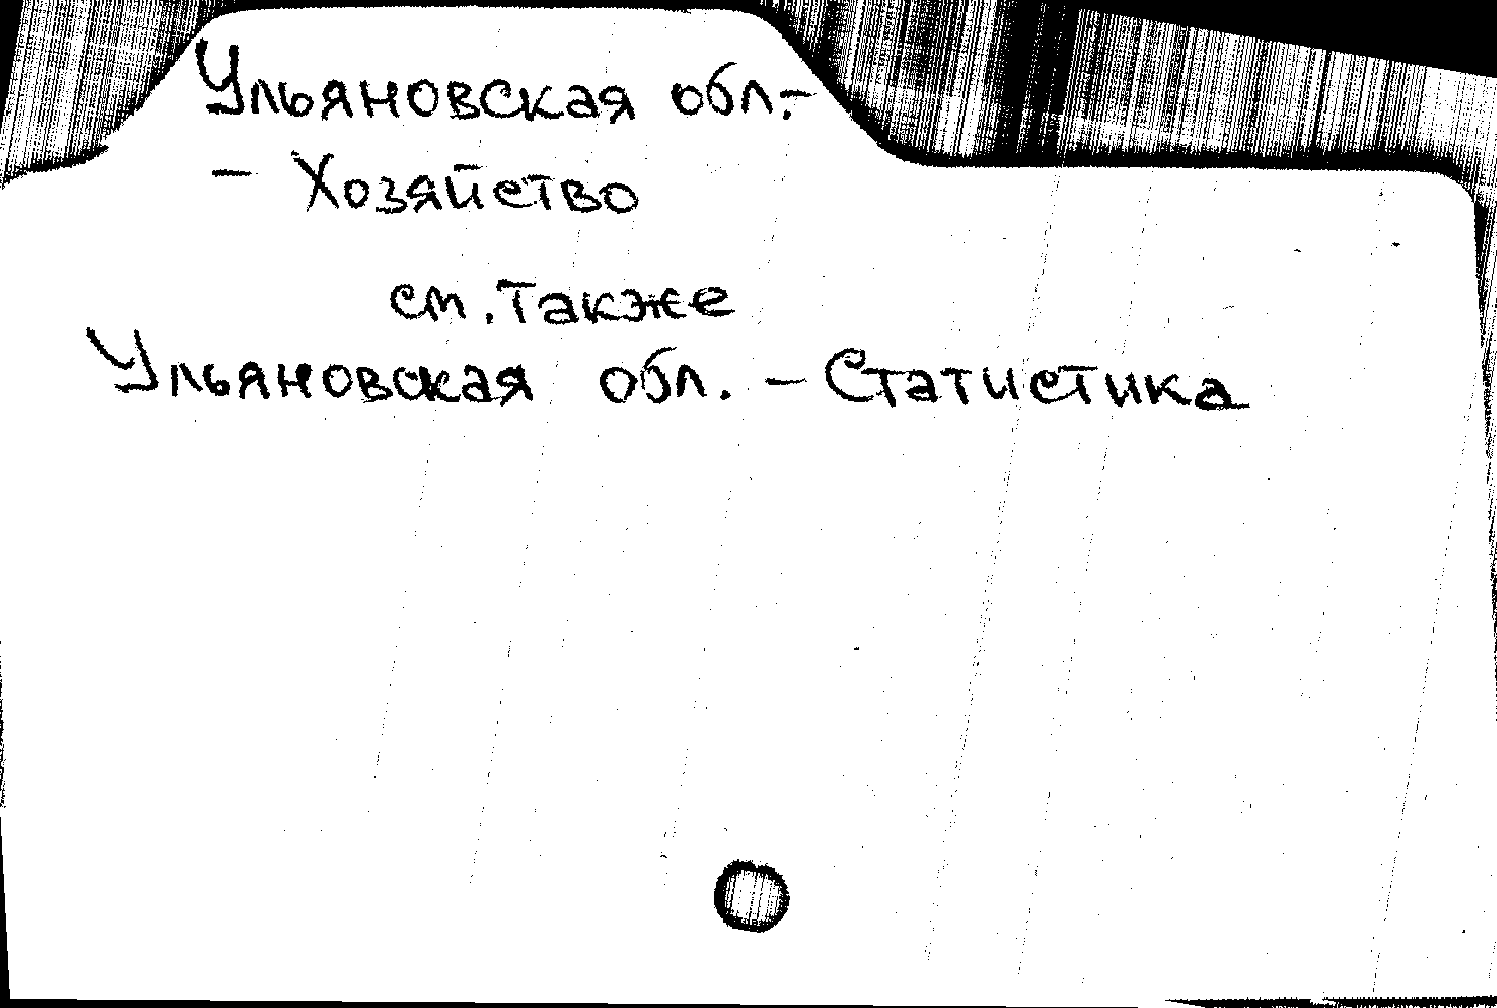 Ульяновская обл.-
- Хозяйство
см. также
Ульяновская обл. - Статистика